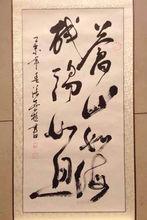 蒼山如海
殘陽如血
丁亥年